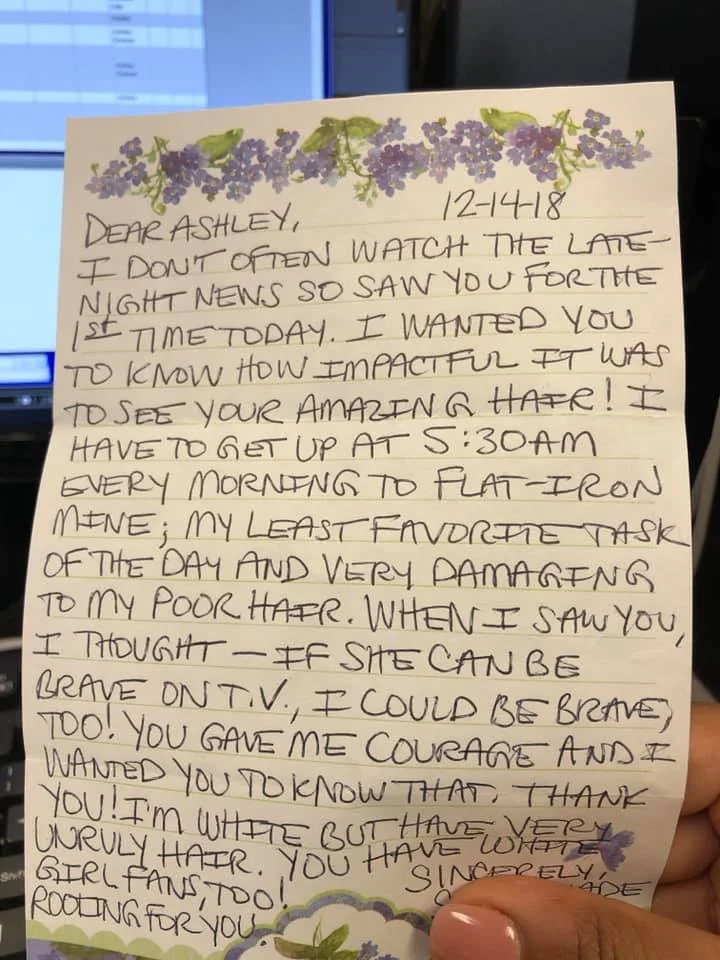 12-14-18
DEAR ASHLEY,
I DON'T OFTEN WATCH THE LATE-
NIGHT NEWS SO SAW YOU FOR THE
1st TIME TODAY. I WANTED YOU
TO KNOW HOW IMPACTFUL IT WAS
TO SEE YOUR AMAZING HAIR! I
HAVE TO GET UP AT 5:30AM
EVERY MORNING TO FLAT-IRON
MINE; MY LEAST FAVORITE TASK
OF THE DAY AND VERY DAMAGING
TO MY POOR HAIR. WHEN I SAW YOU,
I THOUGHT – IF SHE CAN BE
BRAVE ON T.V., I COULD BE BRAVE,
TOO! YOU GAVE ME COURAGE AND I
WANTED YOU TO KNOW THAT. THANK
YOU! I'M WHITE BUT HAVE VERY
UNRULY HAIR. YOU HAVE WHITE
GIRL FANS, TOO!
ROOTING FOR YOU
SINCERELY,